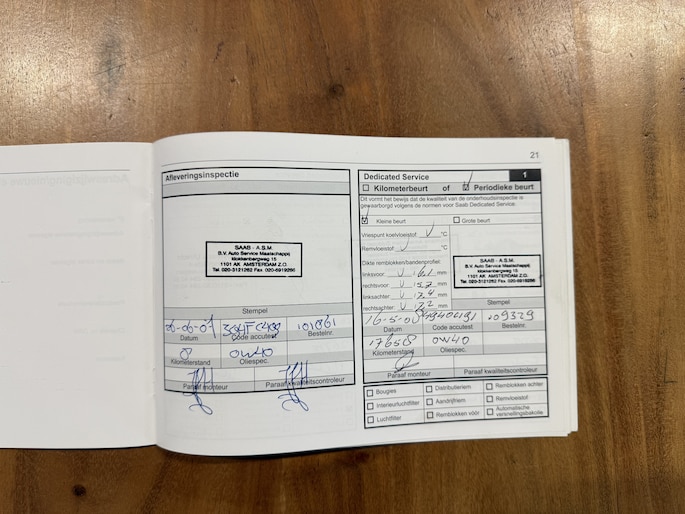 21
Afleveringsinspectie
SAAB - A.S.M.
B.V. Auto Service Maatschappij
klokkenbergweg 15
1101 AK AMSTERDAM Z.O.
Tel. 020-3121262 Fax 020-6919286
Stempel
26-06-07
101861
Datum
Code accutest
Bestelnr.
8
0W40
Kilometerstand
Oliespec.
Paraaf monteur
Paraaf kwaliteitscontroleur
Dedicated Service
1
Kilometerbeurt of
Periodieke beurt
Dit vormt het bewijs dat de kwaliteit van de onderhoudsinspectie is
gewaarborgd volgens de normen voor Saab Dedicated Service.
Kleine beurt
Grote beurt
Vriespunt koelvloeistof
°C
Remvloeistof
°C
Dikte remblokken/bandenprofiel:
linksvoor: 6,1 mm
rechtsvoor: 5,7 mm
linksachter: 7,4 mm
rechtsachter: 7,2 mm
SAAB - A.S.M.
B.V. Auto Service Maatschappij
klokkenbergweg 15
1101 AK AMSTERDAM Z.O.
Tel. 020-3121262 Fax 020-6919286
Stempel
16-5-08
109329
Datum
Code accutest
Bestelnr.
17658
0W40
Kilometerstand
Oliespec.
Paraaf monteur
Paraaf kwaliteitscontroleur
Bougies
Distributieriem
Remblokken achter
Interieurluchtfilter
Aandrijfriem
Remvloeistof
Luchtfilter
Remblokken vóór
Automatische
versnellingsbakolie